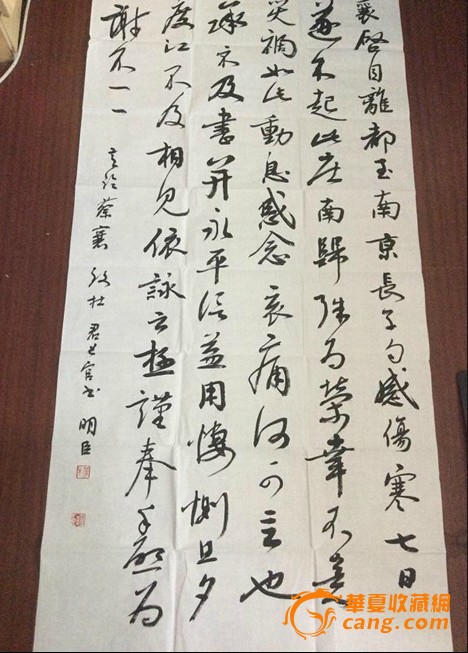 襄啓自離都至南京長子勻感傷寒七日
遂不起此疾南歸殊為榮幸不意
災禍如此動息感念哀痛何可言也
承示及書并永平信益用悽惻旦夕
度江不及相見依詠之極謹奉手啟為
謝不一一
蔡襄致杜君长官书 明臣
華夏收藏網
cang.com